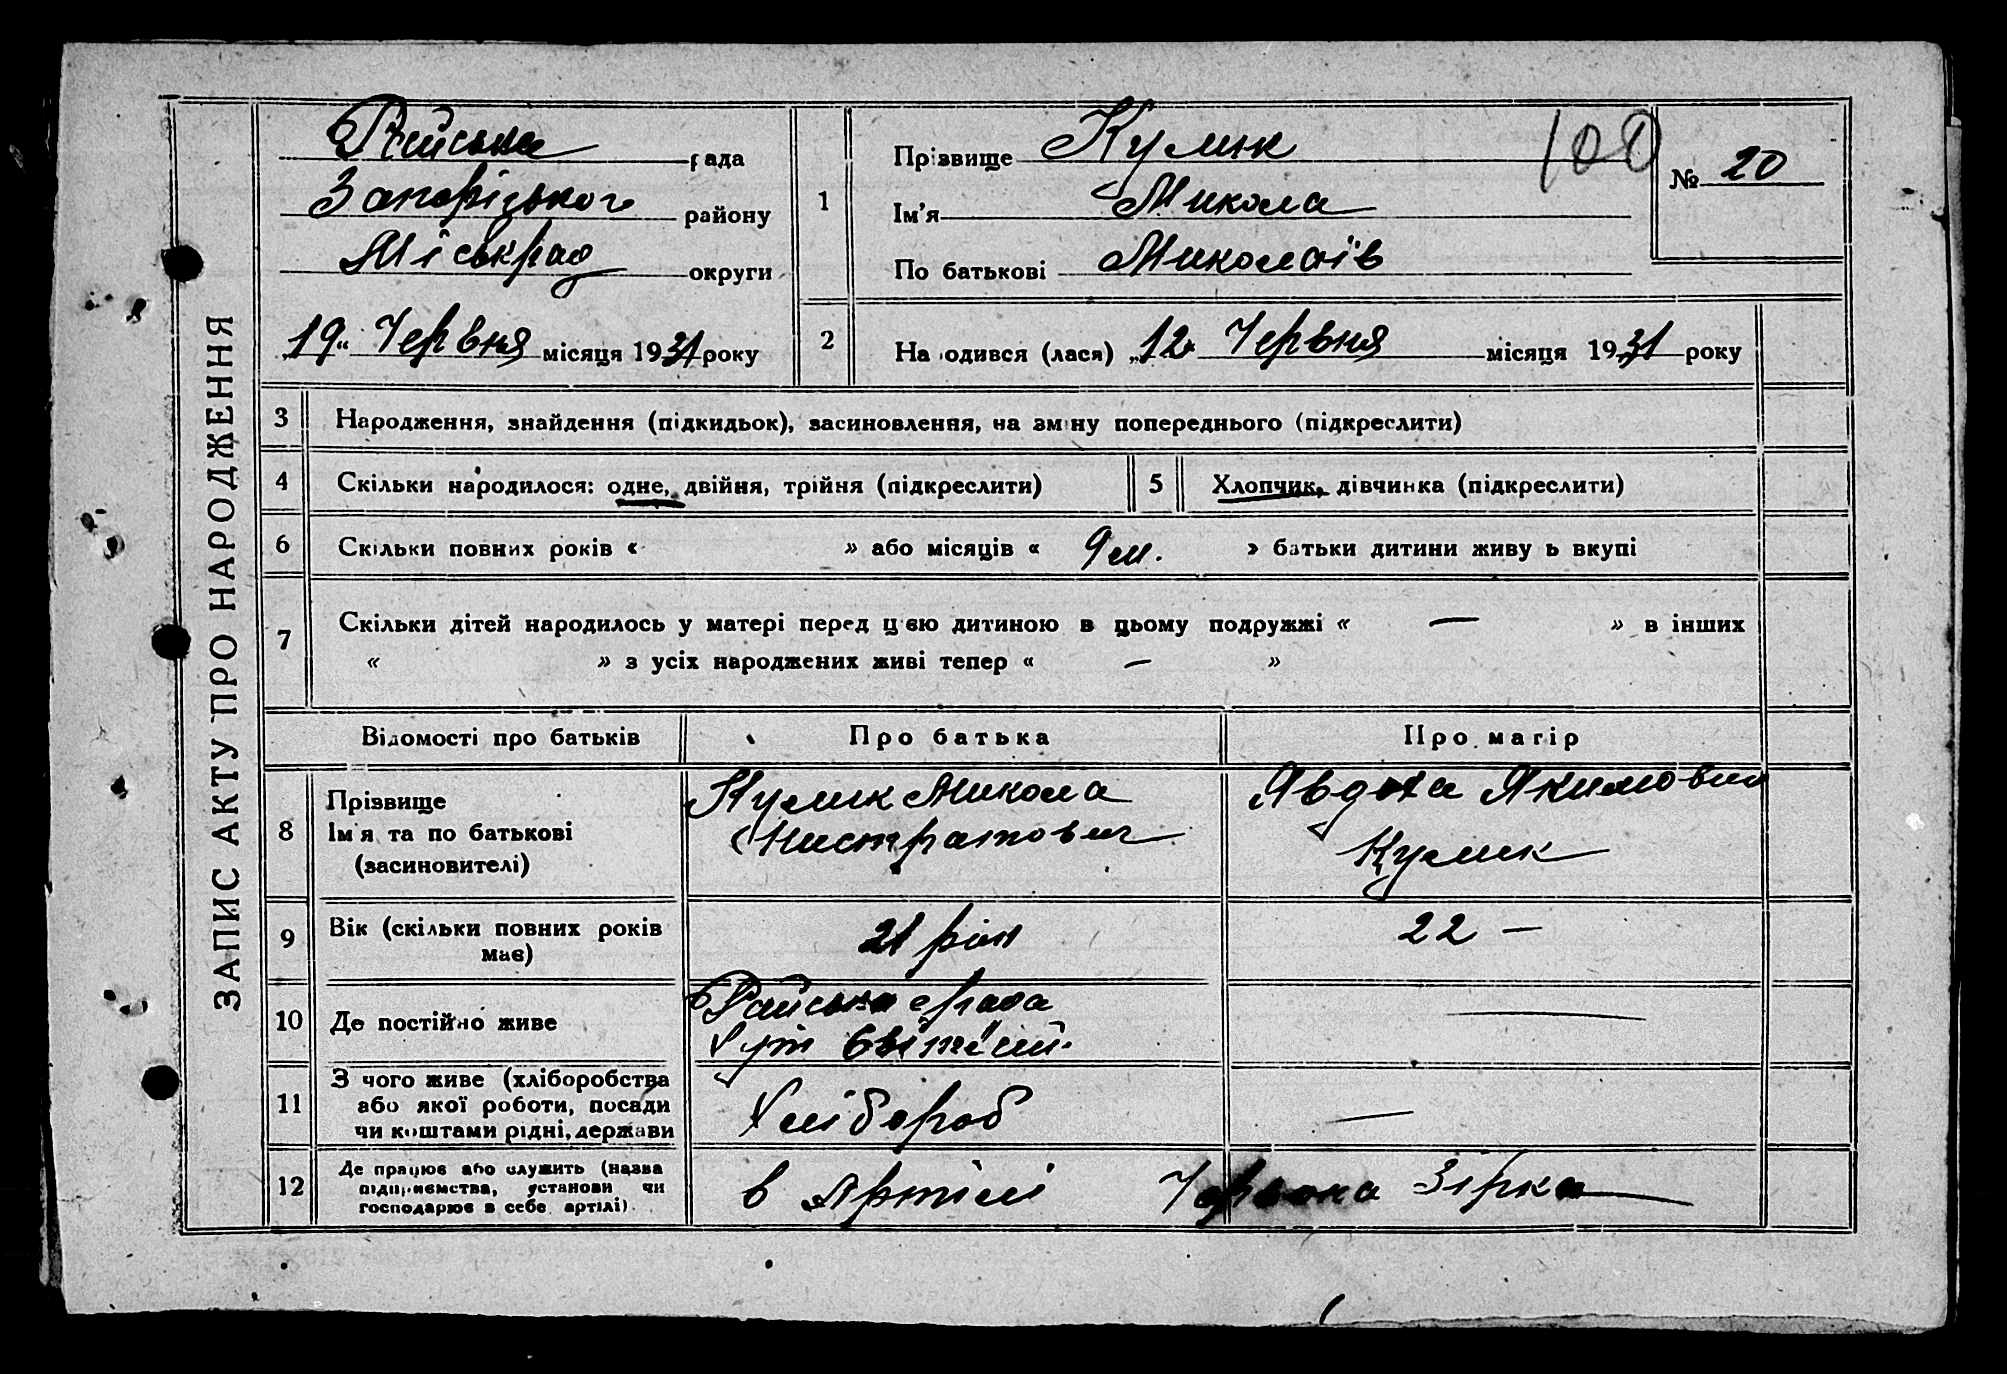 ЗАПИС АКТУ ПРО НАРОДЖЕННЯ
Райська рада
Запоріцького району
Міськрад округи
„19“ Червня місяця 1931 року
1
Прізвище Кулик
Ім'я Микола
По батькові Миколаїв
100
№ 20
2
На одився (лася) „12“ Червня місяця 1931 року
3 Народження, знайдення (підкидьок), засиновлення, на зміну попереднього (підкреслити)
4 Скільки народилося: одне, двійня, трійня (підкреслити)
5 Хлопчик, дівчинка (підкреслити)
6 Скільки повних років « » або місяців « 9 м. » батьки дитини живу ь вкупі
7 Скільки дітей народилось у матері перед цією дитиною в цьому подружжі « — » в інших
« » з усіх народжених живі тепер « — »
Відомості про батьків
Про батька
Про матір
8 Прізвище
Ім'я та по батькові
(засиновителі)
Кулик Микола
Кистратович
Явдоха Якимовна
Кулик
9 Вік (скільки повних років
має)
21 рік
22 —
10 Де постійно живе
Райська срада
Хут
—
11 З чого живе (хліборобства
або якої роботи, посади
чи коштами рідні, держави
Хлібороб
—
12 Де працює або служить (назва
підприємства, установи чи
господарює в себе артілі)
в Артілі Червона Зірка